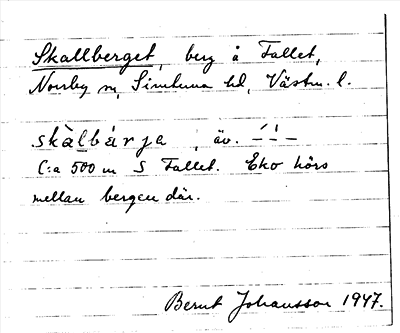 Skallberget, berg å Fallet,
Norrby sn, Simtuna hd, Västm. l.
skàlbárja, äv. – ́ – ̀ –
C:a 500 m S Fallet. Eko hörs
mellan bergen där.
Bernt Johansson 1947.